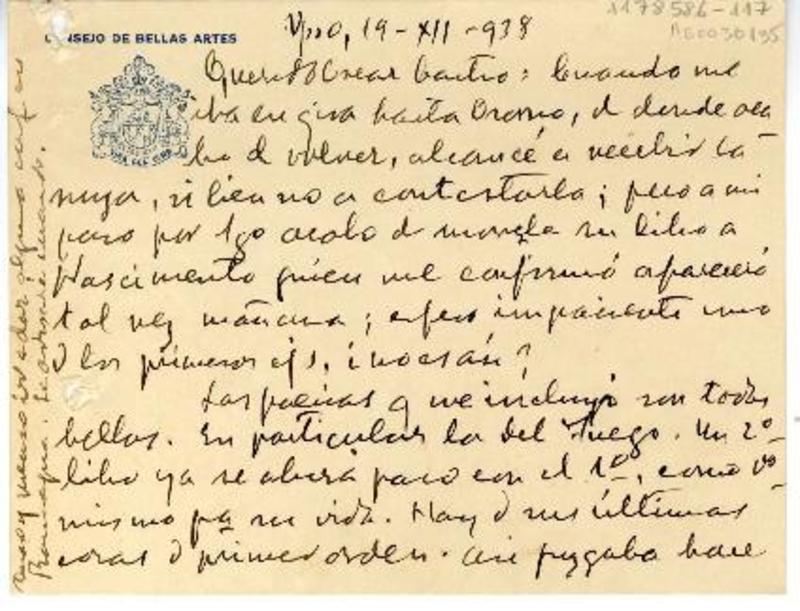 1178586-117
CONSEJO DE BELLAS ARTES
Vpso, 19-XII-938
Querido Oscar Castro: Cuando me
iba en gira hasta Osorno, d donde aca
bo d volver, alcancé a recibir la
suya, si bien no a contestarla; pero a mi
paso por Sgo acabo d su libro a
Nascimento quien me confirmó aparecerá
tal vez mañana; espero impaciente uno
d los primeros ejs, ¿no es así?
Las poesías q me incluyó son todas
bellas. En particular la del Fuego. Un 2º
libro ya se abrirá paso con el 1º, como Ud
mismo pa su vida. Hay d sus últimas
cosas d primer orden. Así juzgaba hace
Rancagua. Le avisaré cuando.